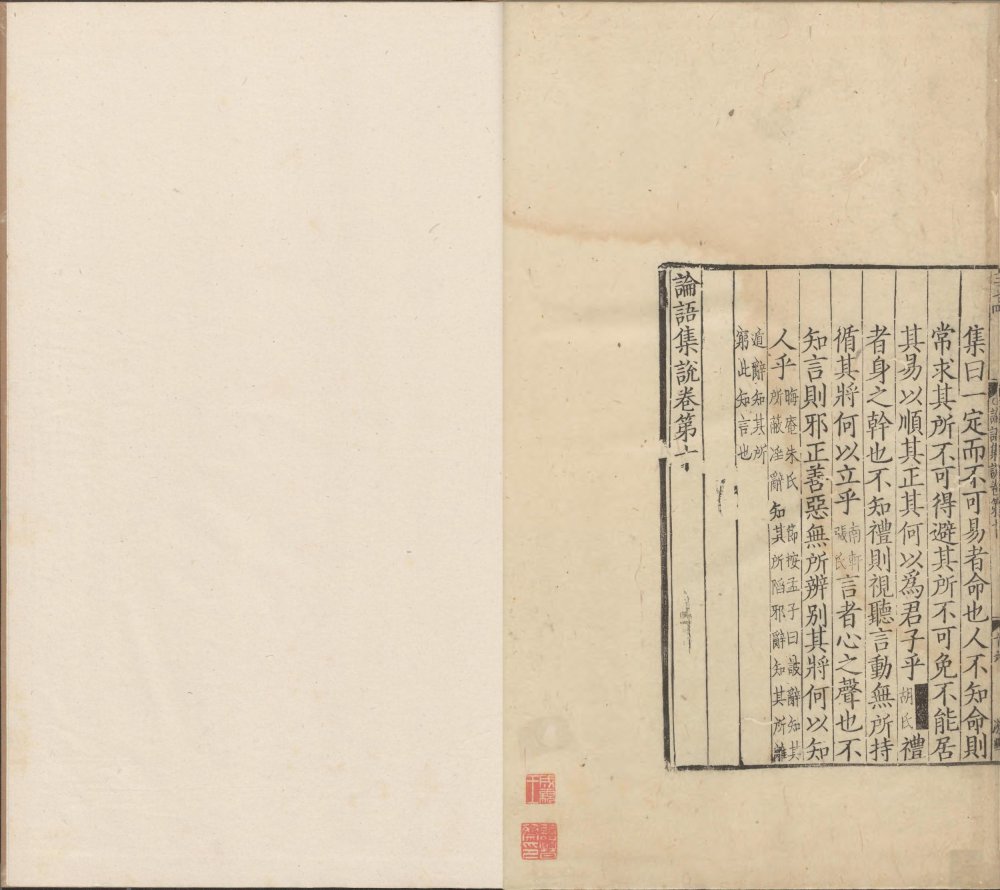 集曰一定而不可易者命也人不知命則
常求其所不可得避其所不可免不能居
其易以順其正其何以爲君子乎胡氏禮
者身之幹也不知禮則視聽言動無所持
循其將何以立乎南軒張氏言者心之聲也不
知言則邪正善惡無所辨别其將何以知
人乎晦庵朱氏節按孟子曰詖辭知其
所蔽淫辭知其所陷邪辭知其所離
遁辭知其所
窮此知言也
論語集說卷第十